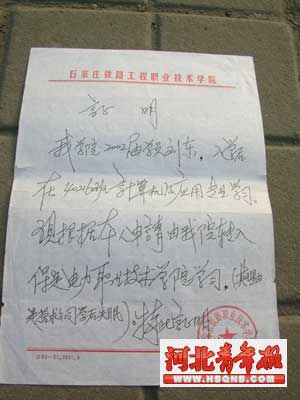 石家庄铁路工程职业技术学院
证 明
我学院2002届学生刘东，入学后
在40216班计算机应用专业学习。
现根据本人申请由我院转入
保定电力职业技术学院学习。(其理由
)。特此证明
河北青年报
WWW.HBQNB.COM